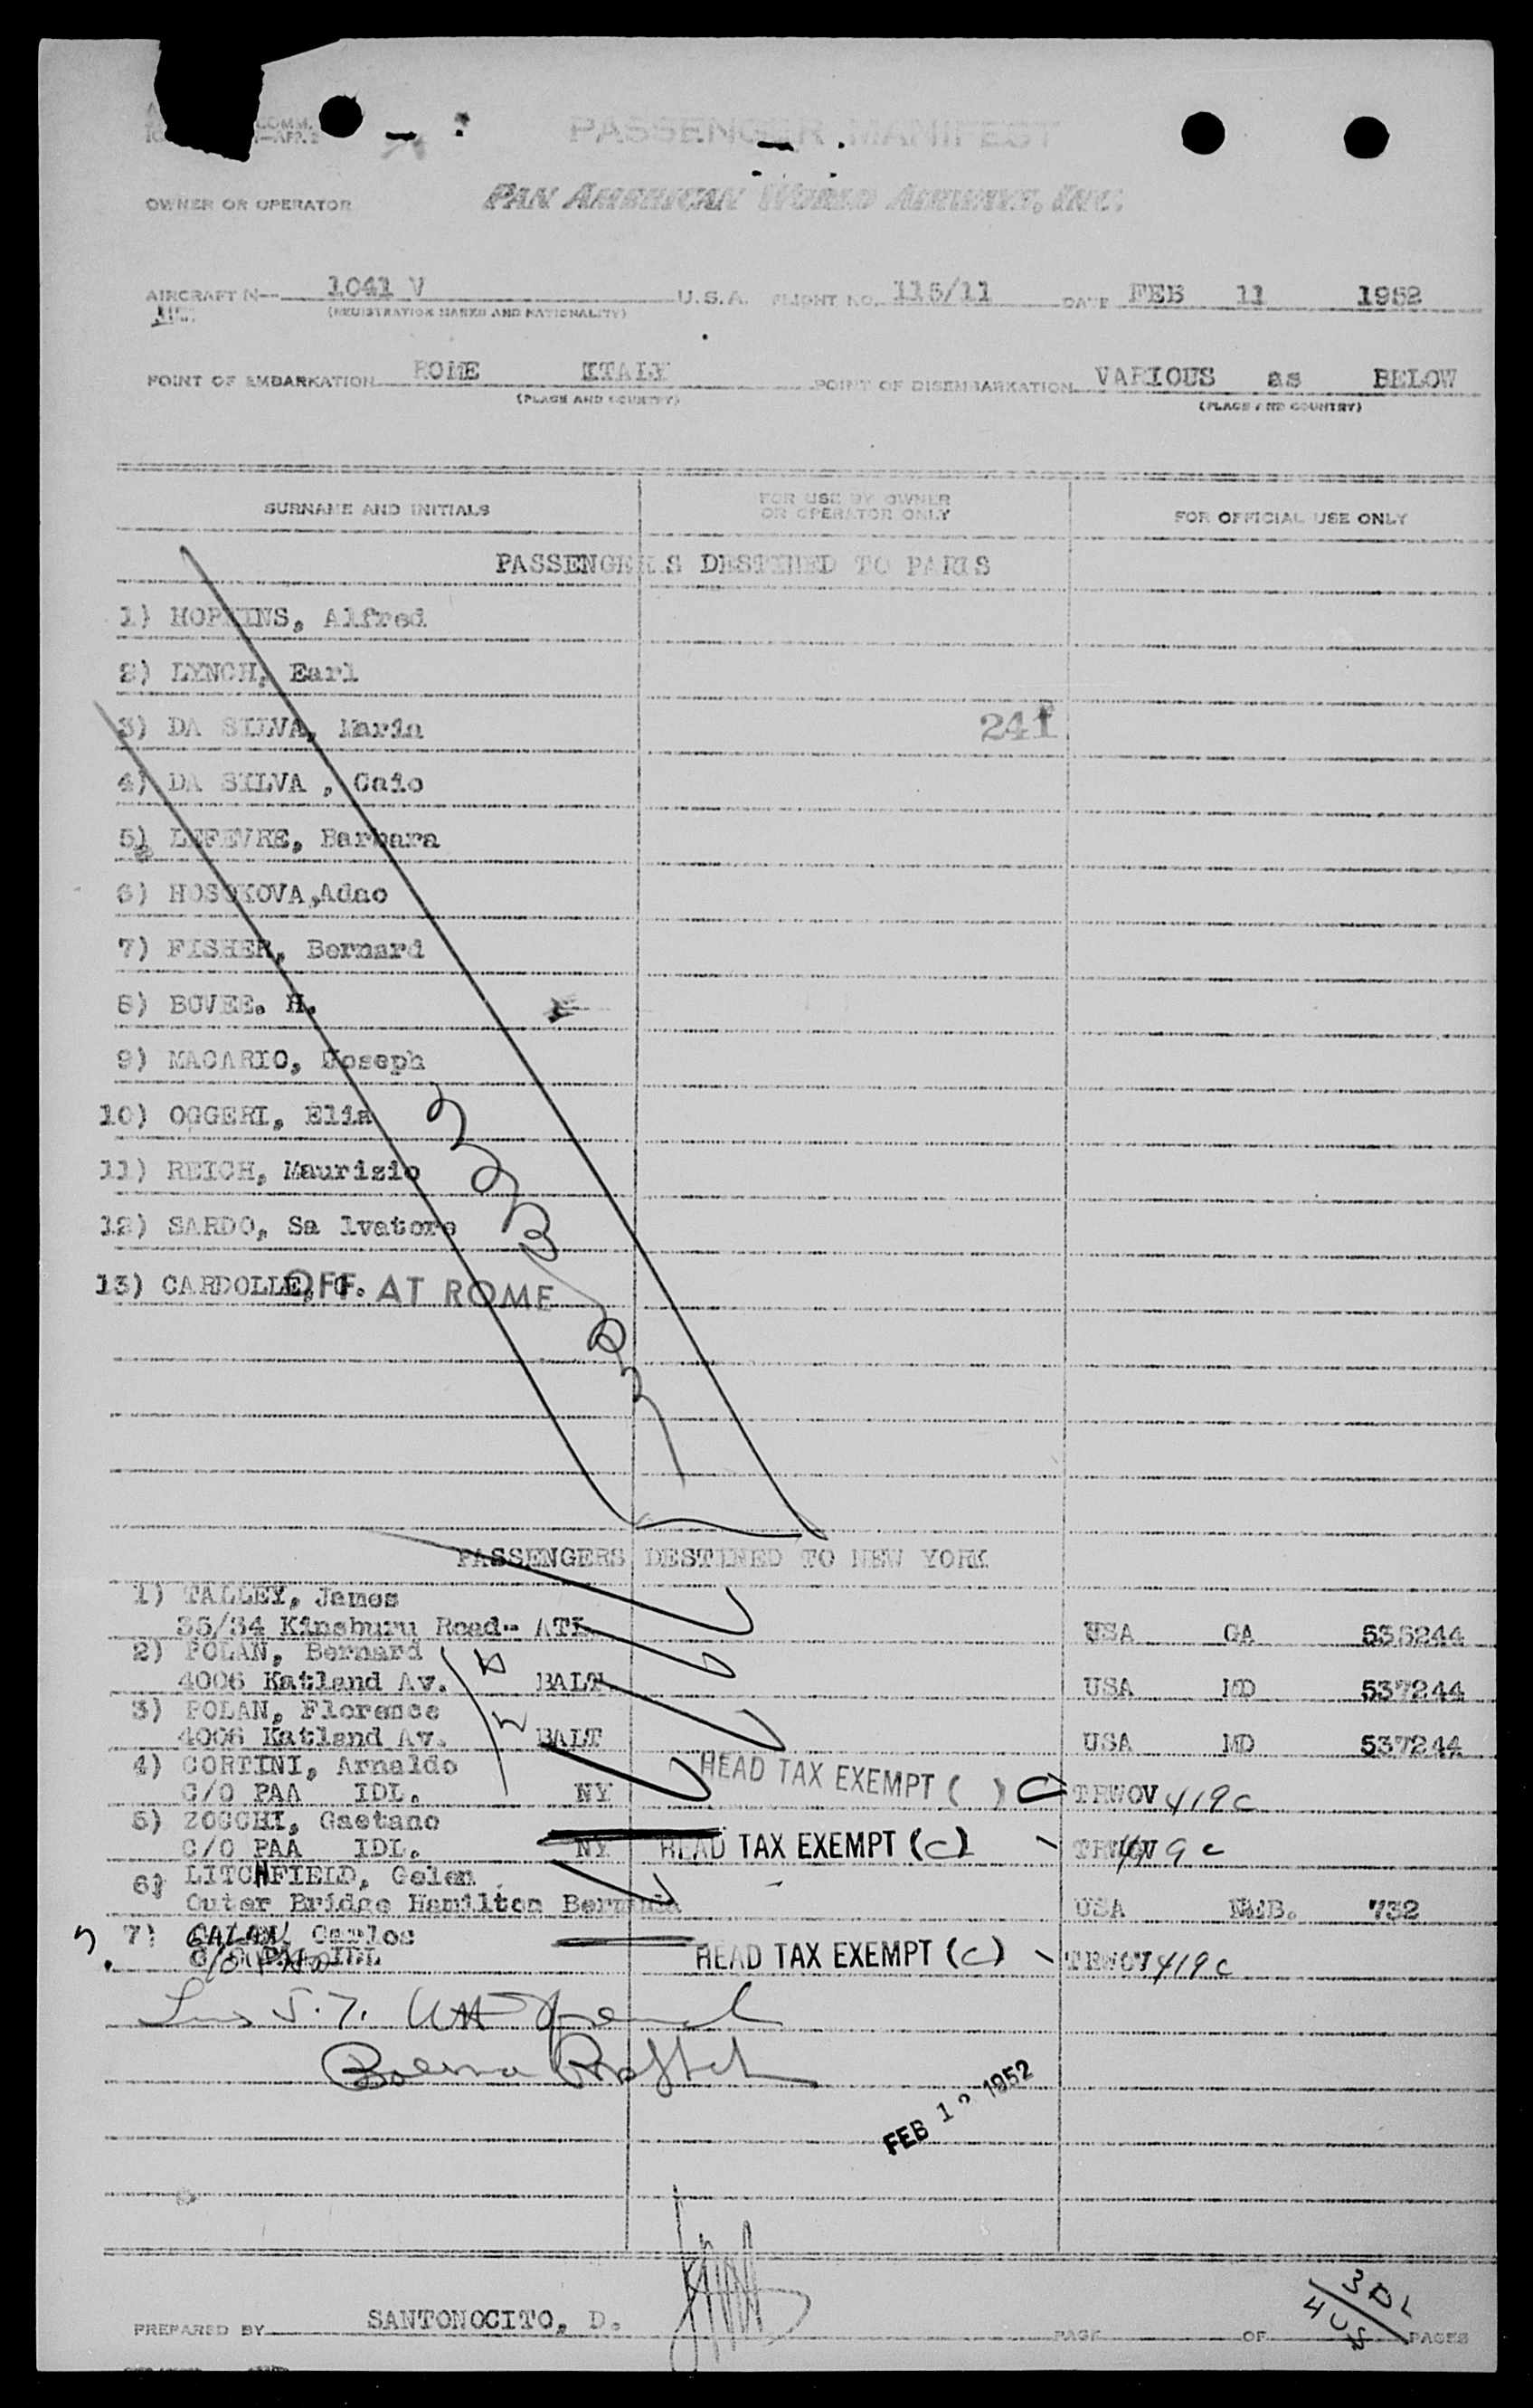 COMM.
PASSENGER MANIFEST
OWNER OR OPERATOR PAN AMERICAN WORLD AIRWAYS, INC.
AIRCRAFT N-- 1041 V U.S.A. FLIGHT NO. 115/11 DATE FEB 11 1952
(REGISTRATION MARKS AND NATIONALITY)
POINT OF EMBARKATION ROME ITALY POINT OF DISEMBARKATION VARIOUS as BELOW
(PLACE AND COUNTRY) (PLACE AND COUNTRY)
SURNAME AND INITIALS FOR USE BY OWNER OR OPERATOR ONLY FOR OFFICIAL USE ONLY
PASSENGERS DESTINED TO PARIS
1) HOPKINS, Alfred
2) LYNCH, Earl
3) DA SILVA, Maria 241
4) DA SILVA , Caio
5) LEFEVRE, Barbara
6) HOSOKOVA,Adao
7) FISHER, Bernard
8) BOVEE. H.
9) MACARIO, Joseph
10) OGGERI, Elia
11) REICH, Maurizio
12) SARDO, Sa lvatore
13) CARDOLLE, OFF. AT ROME
PASSENGERS DESTINED TO NEW YORK
1) TALLEY, James
35/34 Kinsburu Road-- ATL. USA GA 535244
2) POLAN, Bernard
4006 Katland Av. BALT. USA MD 537244
3) POLAN, Florence
4006 Katland Av. BALT USA MD 537244
4) CORTINI, Arnaldo
C/O PAA IDL. NY HEAD TAX EXEMPT ( ) C TRWOV 419c
5) ZOCCHI, Gaetano
C/O PAA IDL. NY HEAD TAX EXEMPT (C)
6) LITCHFIELD, Gelen
Outer Bridge Hamilton Bermuda USA 732
7) GALAN, Carlos
C/O PAA IDL HEAD TAX EXEMPT (C) TRWOV 419c
FEB 1 1952
PREPARED BY SANTONOCITO, D. PAGE OF PAGES
3 DL
4 US